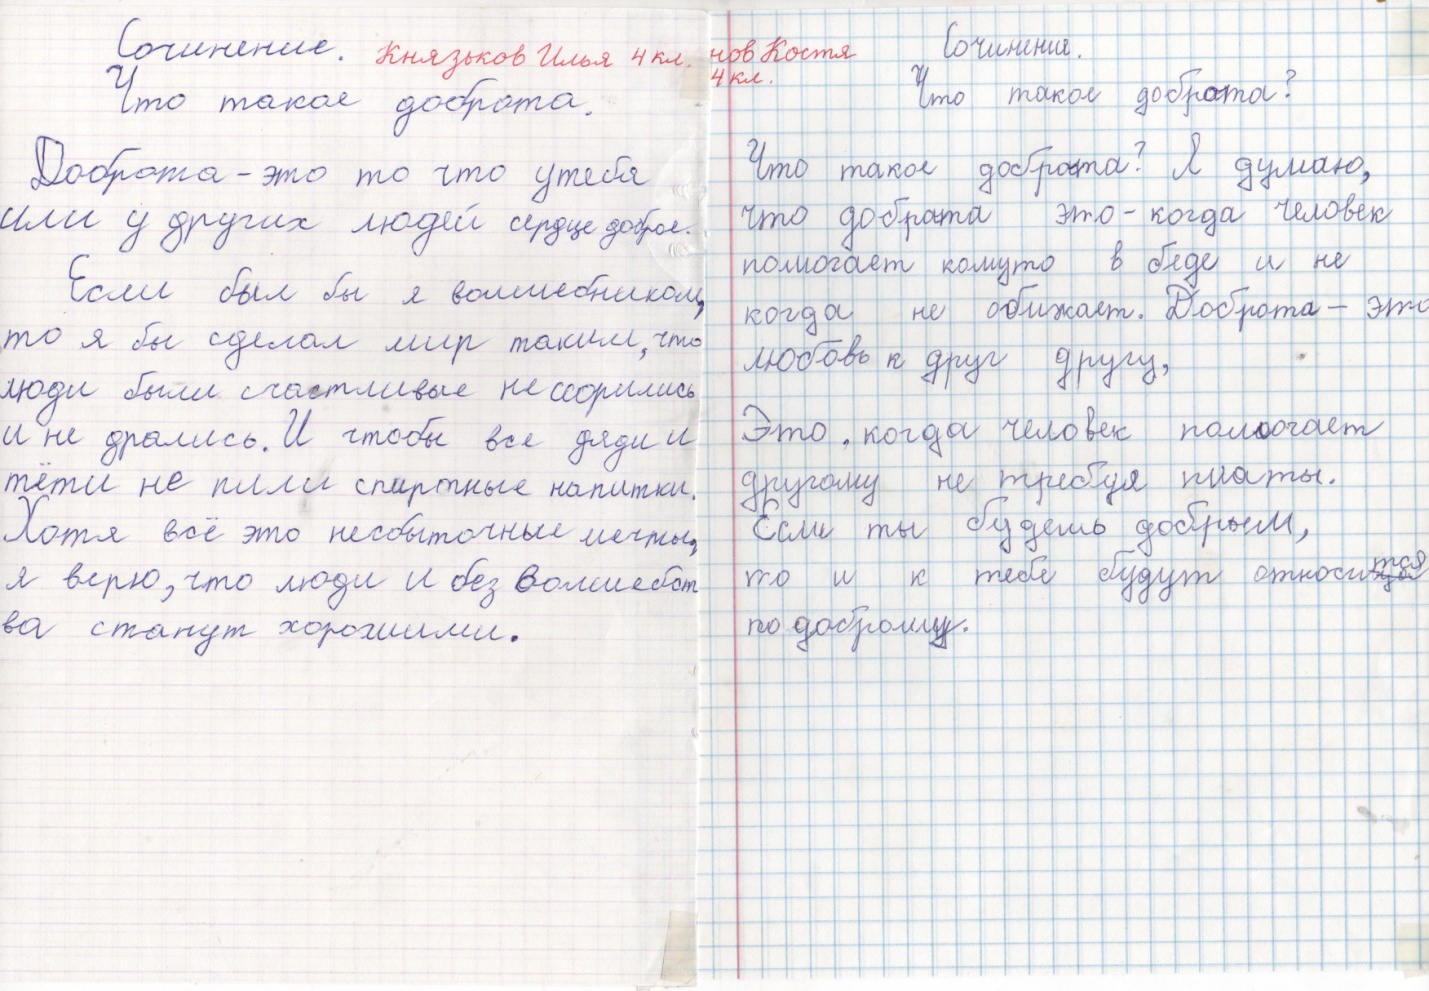 Сочинение. Князьков Илья 4 кл.
Что такое доброта.
Доброта - это то что утебя
или у других людей сердце доброе.
Если был бы я волшебником,
то я бы сделал мир таким, что
люди были счастливые не ссорились
и не дрались. И чтобы все дяди и
тёти не пили спиртные напитки.
Хотя всё это несбыточные мечты,
я верю, что люди и без волшебст
ва станут хорошими.
нов Костя
4 кл.
Сочинение.
Что такое доброта?
Что такое доброта? Я думаю,
что доброта это - когда человек
помогает комуто в беде и не
когда не обижает. Доброта - это
любовь к друг другу,
Это, когда человек помогает
другому не требуя платы.
Если ты будешь добрым,
то и к тебе будут относится
по доброму.